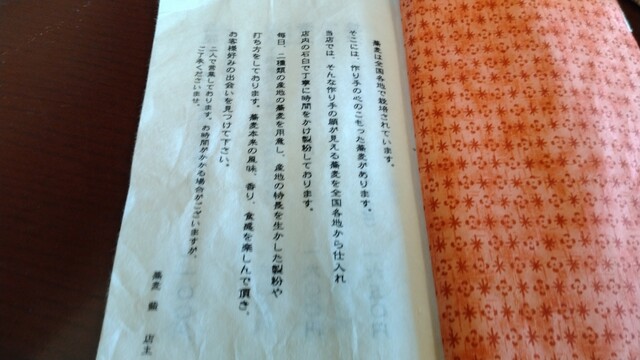 蕎麦は全国各地で栽培されています。
そこには、作り手の心のこもった蕎麦があります。
当店では、そんな作り手の顔が見える蕎麦を全国各地から仕入れ
店内の石臼で丁寧に時間をかけ製粉しております。
毎日、二種類の産地の蕎麦を用意し、産地の特長を生かした製粉や
打ち方をしております。蕎麦本来の風味、香り、食感を楽しんで頂き、
お客様好みの出会いを見つけて下さい。
二人で営業しております。お時間がかかる場合がございますが、
ご了承くださいませ。
蕎麦 店主